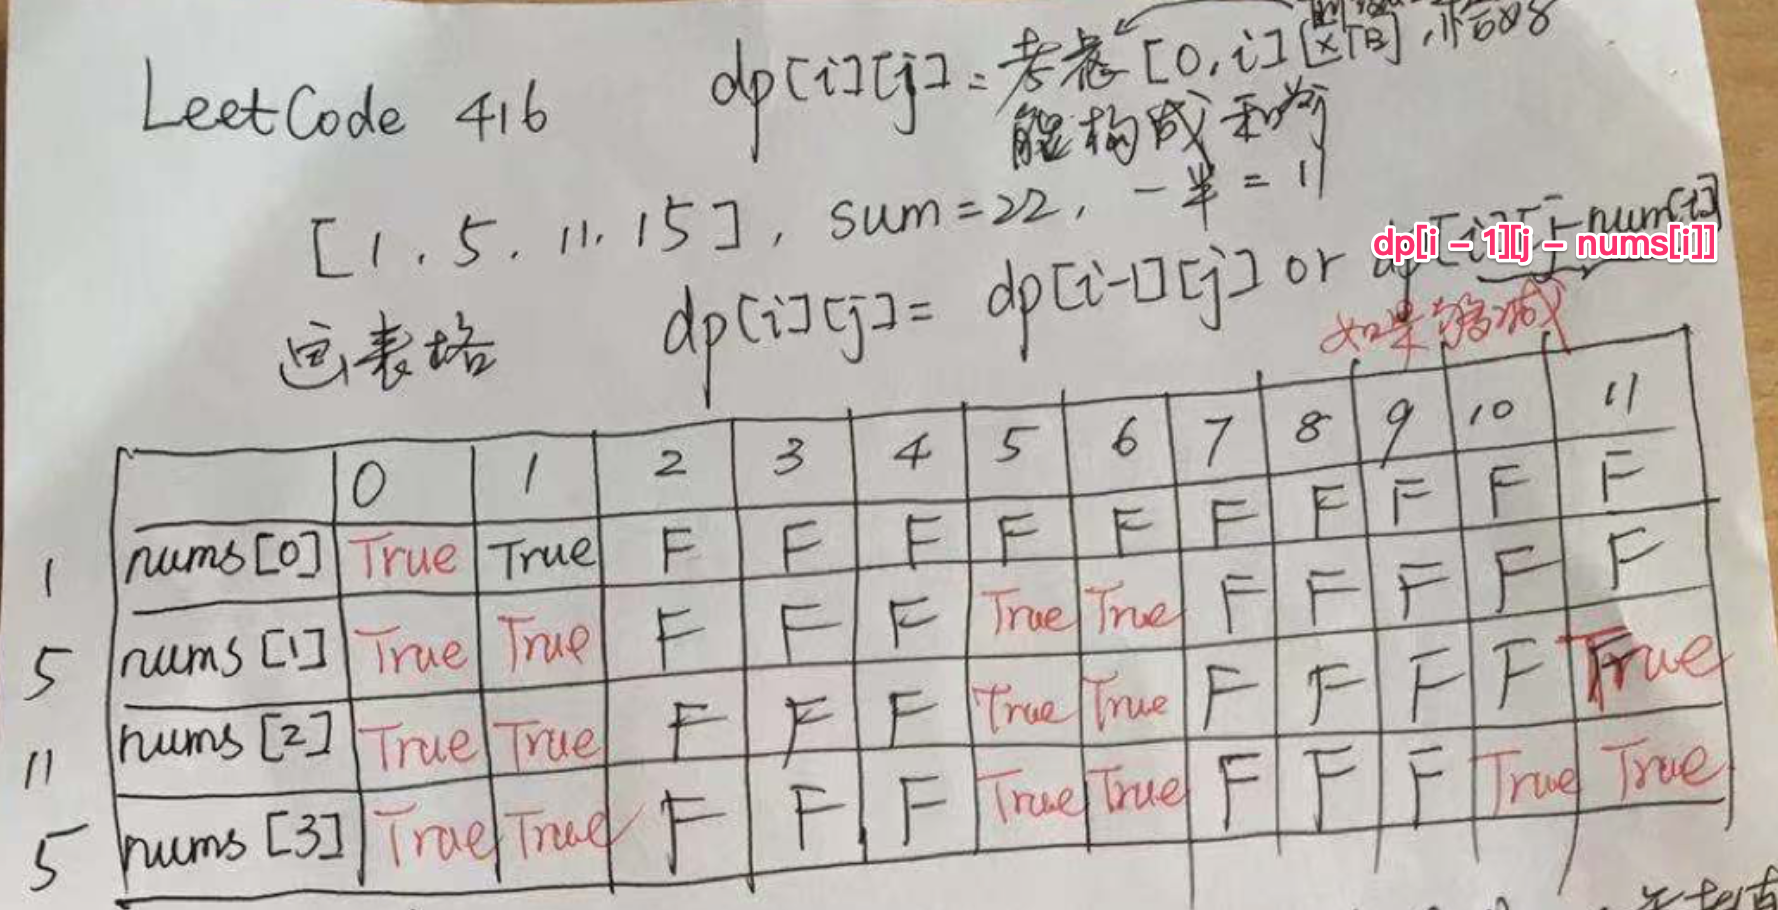 LeetCode 416
dp[i][j] = 考虑[0,i][区间],
能构成和为j
[1, 5, 11, 15], sum=22, 一半=11
dp[i - 1][j - nums[i]]
dp[i][j] = dp[i-1][j] or
画表格
如果够减
0 1 2 3 4 5 6 7 8 9 10 11
1 nums[0] True True F F F F F F F F F F
5 nums[1] True True F F F True True F F F F F
11 nums[2] True True F F F True True F F F F True
5 nums[3] True True F F F True True F F F True True